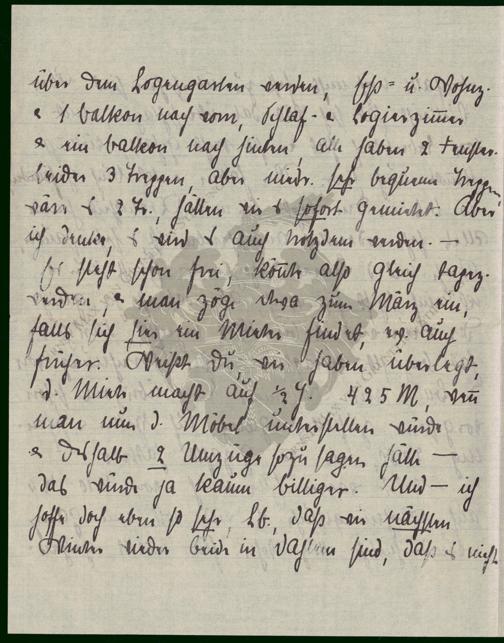 über dem Logengarten werden, Eß= u. Wohnz.
& 1 balkon nach vorn, Schlaf- & Logierzimmer
& ein balkon nach hinten, alle haben 2 Fenster.
Leider 3 Treppen, aber niedr. sehr bequeme Treppe,
wärs 2 Tr., hätten wir s sofort gemietet. Aber
ich denke, s wird s auch trotzdem werden. —
Es steht schon frei, könnte also gleich tapez.
werden, & man zöge etwa zum März ein,
falls sich hier ein Mieter findet, ev. auch
früher. Weißt du, wir haben überlegt,
d. Miete macht auf ½ J. 425 M, wenn
man nun d. Möbel unterstellen würde
& deshalb 2 Umzüge sozusagen hätte —
das würde ja kaum billiger. Und — ich
hoffe doch eben so sehr, Lb., daß wir nächsten
Winter wieder beide in Dahlem sind, daß s nicht